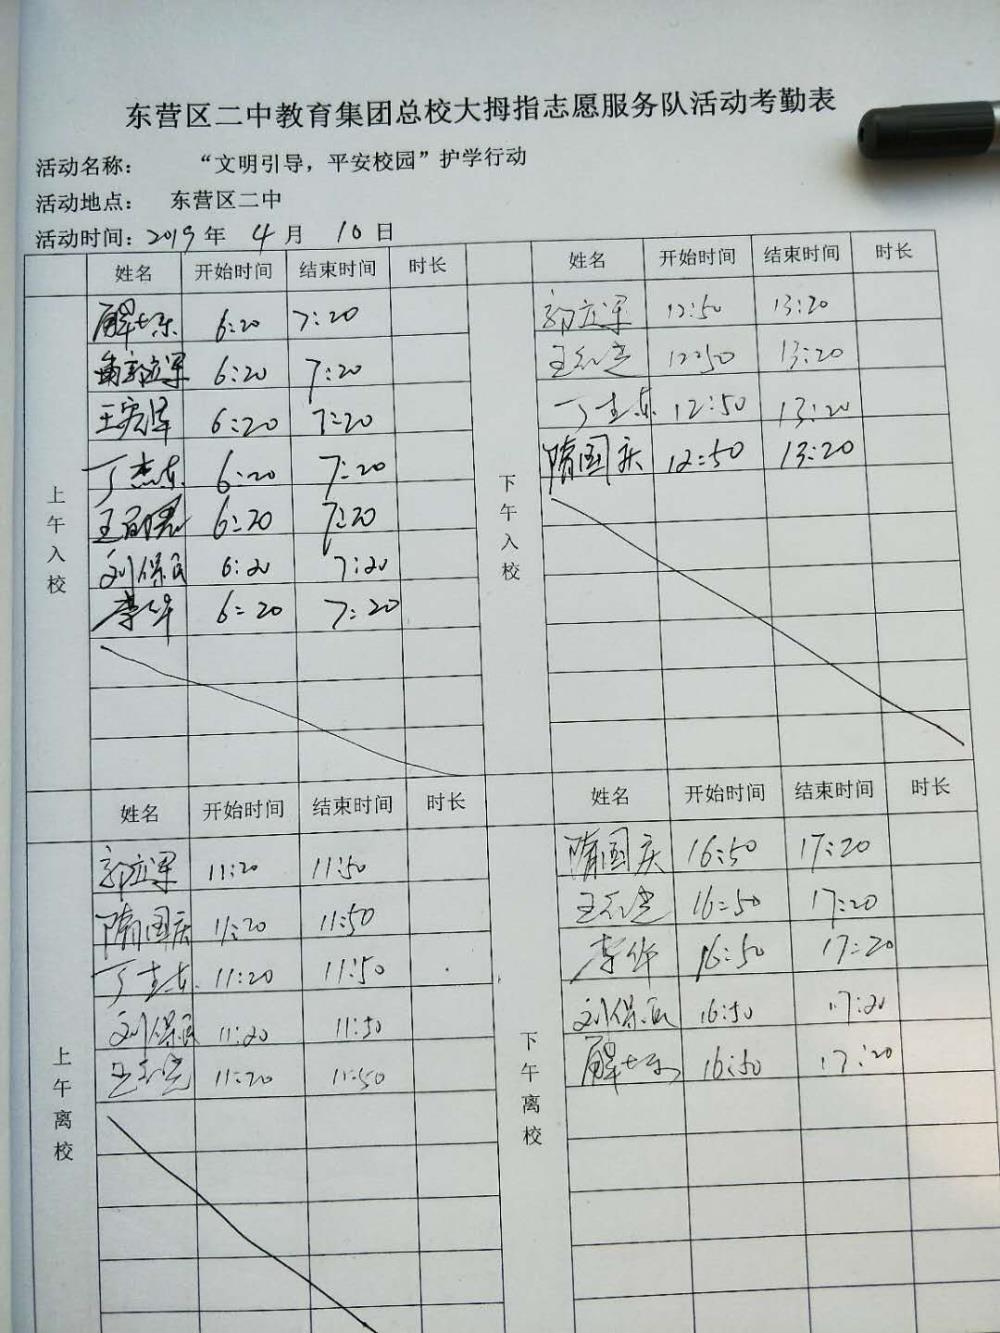 东营区二中教育集团总校大拇指志愿服务队活动考勤表
活动名称： “文明引导，平安校园”护学行动
活动地点： 东营区二中
活动时间：2019年 4月 10日
姓名 开始时间 结束时间 时长
上午入校
6:20 7:20
郭立军 6:20 7:20
王宪泽 6:20 7:20
丁杰东 6:20 7:20
6:20 7:20
刘保民 6:20 7:20
李华 6:20 7:20
姓名 开始时间 结束时间 时长
下午入校
郭立军 12:50 13:20
12:50 13:20
丁杰东 12:50 13:20
隋国庆 12:50 13:20
姓名 开始时间 结束时间 时长
上午离校
郭立军 11:20 11:50
隋国庆 11:20 11:50
丁杰东 11:20 11:50
刘保民 11:20 11:50
11:20 11:50
姓名 开始时间 结束时间 时长
下午离校
隋国庆 16:50 17:20
16:50 17:20
李华 16:50 17:20
刘保民 16:50 17:20
16:50 17:20